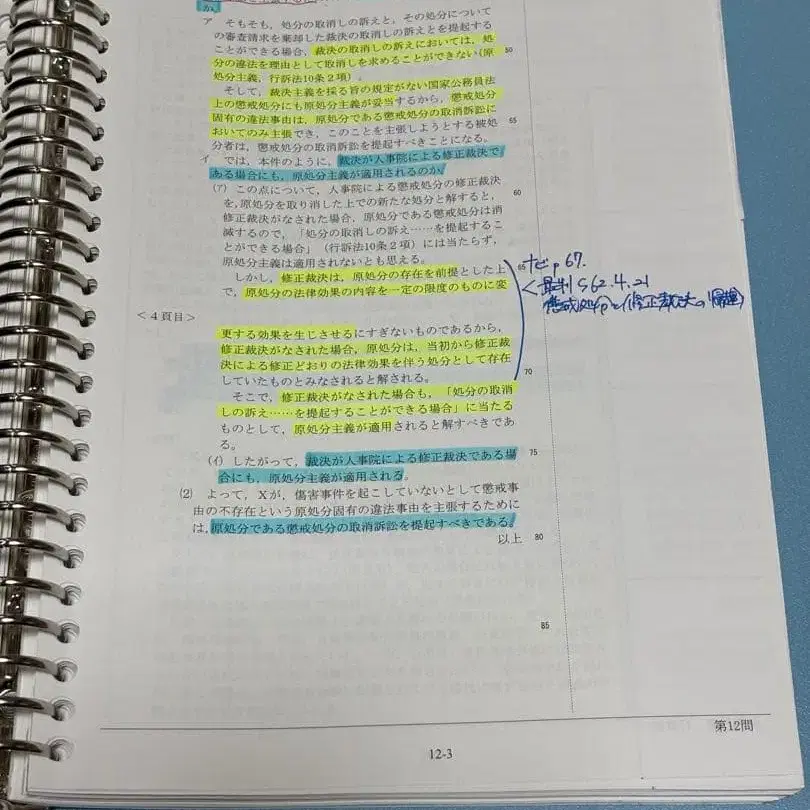 か。
ア　そもそも，処分の取消しの訴えと，その処分について
の審査請求を棄却した裁決の取消しの訴えとを提起する
ことができる場合，裁決の取消しの訴えにおいては，処
分の違法を理由として取消しを求めることができない（原
処分主義，行訴法10条２項）。
そして，裁決主義を採る旨の規定がない国家公務員法
上の懲戒処分にも原処分主義が妥当するから，懲戒処分
固有の違法事由は，原処分である懲戒処分の取消訴訟に
おいてのみ主張でき，このことを主張しようとする被処
分者は，懲戒処分の取消訴訟を提起すべきことになる。
イ　では，本件のように，裁決が人事院による修正裁決で
ある場合にも，原処分主義が適用されるのか。
(ｱ)　この点について，人事院による懲戒処分の修正裁決
を，原処分を取り消した上での新たな処分と解すると，
修正裁決がなされた場合，原処分である懲戒処分は消
滅するので，「処分の取消しの訴え……を提起するこ
とができる場合」（行訴法10条２項）には当たらず，
原処分主義は適用されないとも思える。
しかし，修正裁決は，原処分の存在を前提とした上
で，原処分の法律効果の内容を一定の限度のものに変
＜４頁目＞
更する効果を生じさせるにすぎないものであるから，
修正裁決がなされた場合，原処分は，当初から修正裁
決による修正どおりの法律効果を伴う処分として存在
していたものとみなされると解される。
そこで，修正裁決がなされた場合も，「処分の取消
しの訴え……を提起することができる場合」に当たる
ものとして，原処分主義が適用されると解すべきであ
る。
(ｲ)　したがって，裁決が人事院による修正裁決である場
合にも，原処分主義が適用される。
⑵　よって，Ｘが，傷害事件を起こしていないとして懲戒事
由の不存在という原処分固有の違法事由を主張するために
は，原処分である懲戒処分の取消訴訟を提起すべきである。
以上
50
55
60
65
70
75
80
85
ナビp67.
最判S62.4.21
懲戒処分と修正裁決の
第12問
12-3